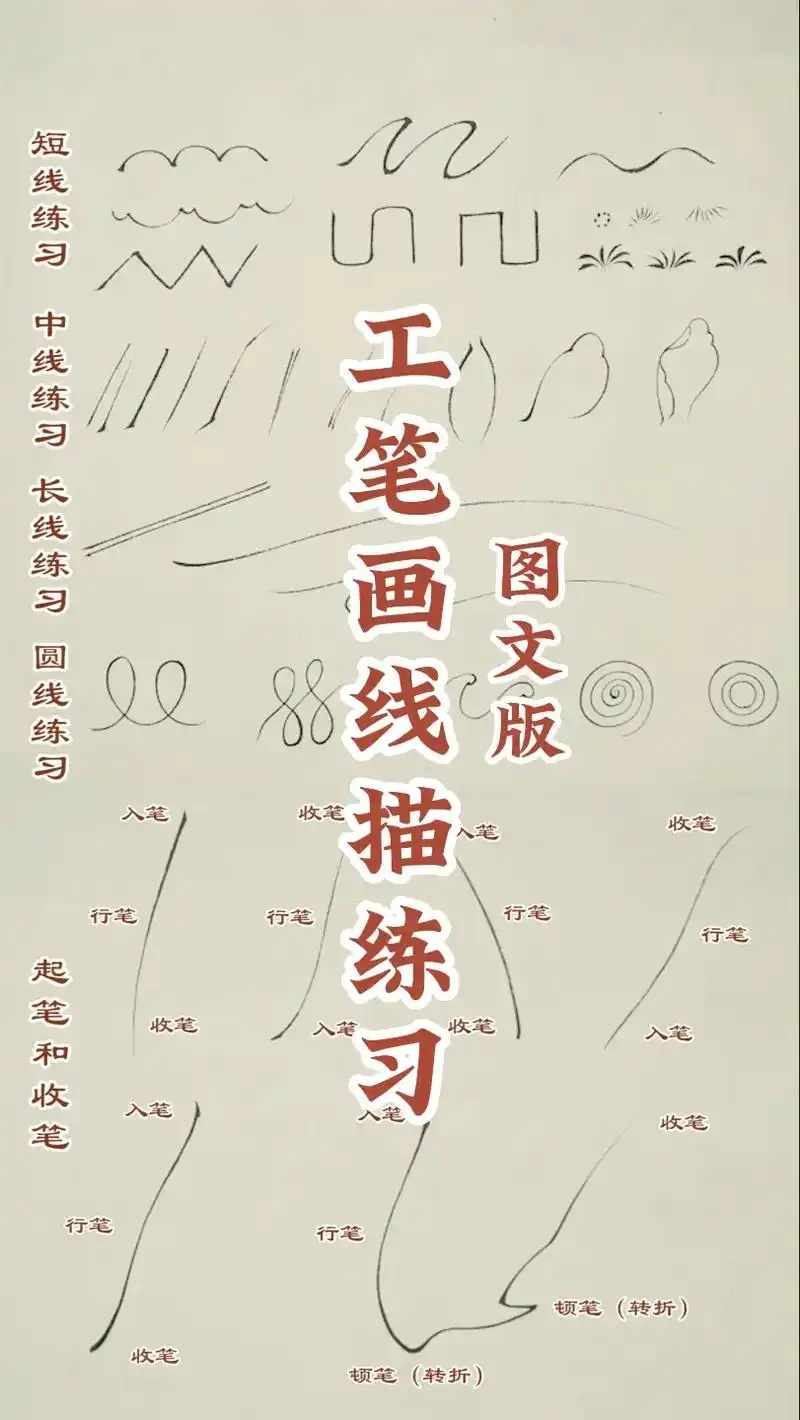 短线练习
中线练习
长线练习
圆线练习
起笔和收笔
工笔画线描练习
图文版
入笔
行笔
收笔
收笔
行笔
入笔
入笔
行笔
收笔
收笔
行笔
入笔
入笔
行笔
收笔
入笔
行笔
顿笔（转折）
顿笔（转折）
收笔